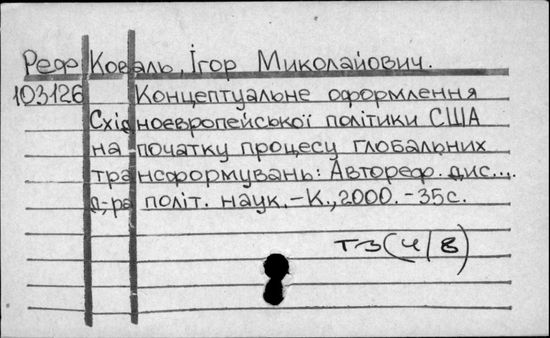 Реф Коваль, Ігор Миколайович.
103126 Концептуальне оформлення
Східноевропейської політики США
на початку процесу глобальних
трансформувань: Автореф. дис...
д-ра політ. наук.-К.,2000.-35с.
ТЗ(4/8)